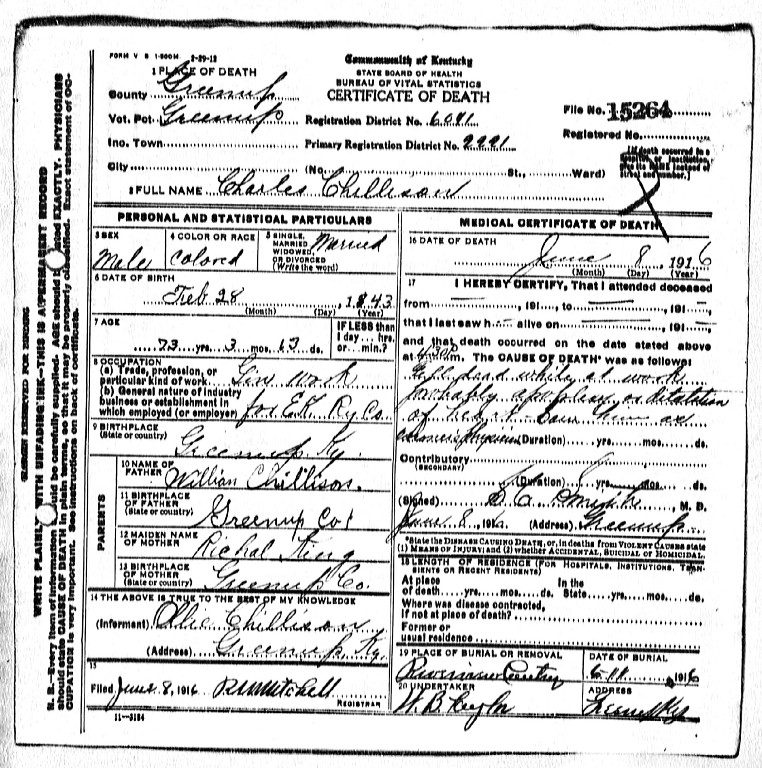 FORM V S 1-500M 2-29-12
Commonwealth of Kentucky
STATE BOARD OF HEALTH
BUREAU OF VITAL STATISTICS
CERTIFICATE OF DEATH
1 PLACE OF DEATH
County Greenup
Vot. Pct Greenup
Registration District No. 6091
Inc. Town
Primary Registration District No. 2221
City (No. St., Ward)
File No. 15264
Registered No.
[If death occurred in a hospital or institution, give its NAME instead of street and number.]
2 FULL NAME Charles Chillison
PERSONAL AND STATISTICAL PARTICULARS
3 SEX
Male
4 COLOR OR RACE
Colored
5 SINGLE, MARRIED, WIDOWED, OR DIVORCED (Write the word)
Married
6 DATE OF BIRTH
Feb 28, 1843
(Month) (Day) (Year)
7 AGE
73 yrs. 3 mos. 13 ds.
IF LESS than 1 day hrs. or min.?
8 OCCUPATION
(a) Trade, profession, or particular kind of work Gen work
(b) General nature of industry business or establishment in which employed (or employer) for E.K. Ry Co.
9 BIRTHPLACE
(State or country)
Greenup Ky.
PARENTS
10 NAME OF FATHER
William Chillison.
11 BIRTHPLACE OF FATHER
(State or country)
Greenup Co
12 MAIDEN NAME OF MOTHER
Richal King
13 BIRTHPLACE OF MOTHER
(State or country)
Greenup Co.
14 THE ABOVE IS TRUE TO THE BEST OF MY KNOWLEDGE
(Informant) Ollie Chillison
(Address) Greenup Ky.
15
Filed June 8, 1916 R. Mitchell
REGISTRAR
11--3184
MEDICAL CERTIFICATE OF DEATH
16 DATE OF DEATH
June 8 1916
(Month) (Day) (Year)
17 I HEREBY CERTIFY, That I attended deceased
from , 191 , to , 191 ,
that I last saw h alive on , 191 ,
and that death occurred on the date stated above
at m. The CAUSE OF DEATH* was as follows:
fell dead while at work
probably apoplexy or dilatation
of heart. Saw him as
coroner's physician (Duration) yrs. mos. ds.
Contributory
(SECONDARY)
(Duration) yrs. mos. ds.
(Signed) M. D.
June 8, 1916 (Address) Greenup
*State the DISEASE CAUSING DEATH, or, in deaths from VIOLENT CAUSES state (1) MEANS OF INJURY; and (2) whether ACCIDENTAL, SUICIDAL or HOMICIDAL.
18 LENGTH OF RESIDENCE (FOR HOSPITALS, INSTITUTIONS, TRANSIENTS OR RECENT RESIDENTS)
At place of death yrs. mos. ds. In the State yrs. mos. ds.
Where was disease contracted, if not at place of death?
Former or usual residence
19 PLACE OF BURIAL OR REMOVAL
DATE OF BURIAL
6-11 1916
20 UNDERTAKER
W. B. Taylor
ADDRESS
Greenup Ky
MARGIN RESERVED FOR BINDING
WRITE PLAINLY WITH UNFADING INK--THIS IS A PERMANENT RECORD
N. B.--Every item of information should be carefully supplied. AGE should be stated EXACTLY. PHYSICIANS
should state CAUSE OF DEATH in plain terms, so that it may be properly classified. Exact statement of OC-
CUPATION is very important. See instructions on back of certificate.